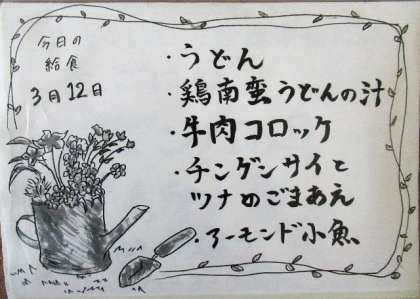 今日の
給食
3月12日
・うどん
・鶏南蛮うどんの汁
・牛肉コロッケ
・チンゲンサイと
ツナのごまあえ
・アーモンド小魚